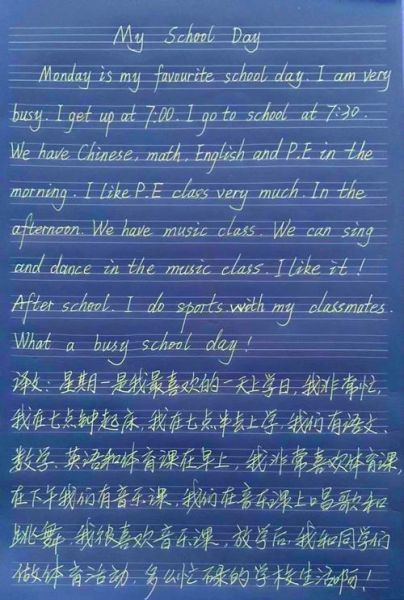 My School Day
Monday is my favourite school day. I am very
busy. I get up at 7:00. I go to school at 7:30.
We have Chinese, math, English and P.E in the
morning. I like P.E class very much. In the
afternoon. We have music class. We can sing
and dance in the music class. I like it!
After school. I do sports with my classmates.
What a busy school day!
译文:星期一是我最喜欢的一天上学日,我非常忙,
我在七点钟起床,我在七点半去上学,我们有语文、
数学、英语和体育课在早上,我非常喜欢体育课,
在下午我们有音乐课,我们在音乐课上唱歌和
跳舞,我很喜欢音乐课,放学后,我和同学们
做体育活动,多么忙碌的学校生活啊!